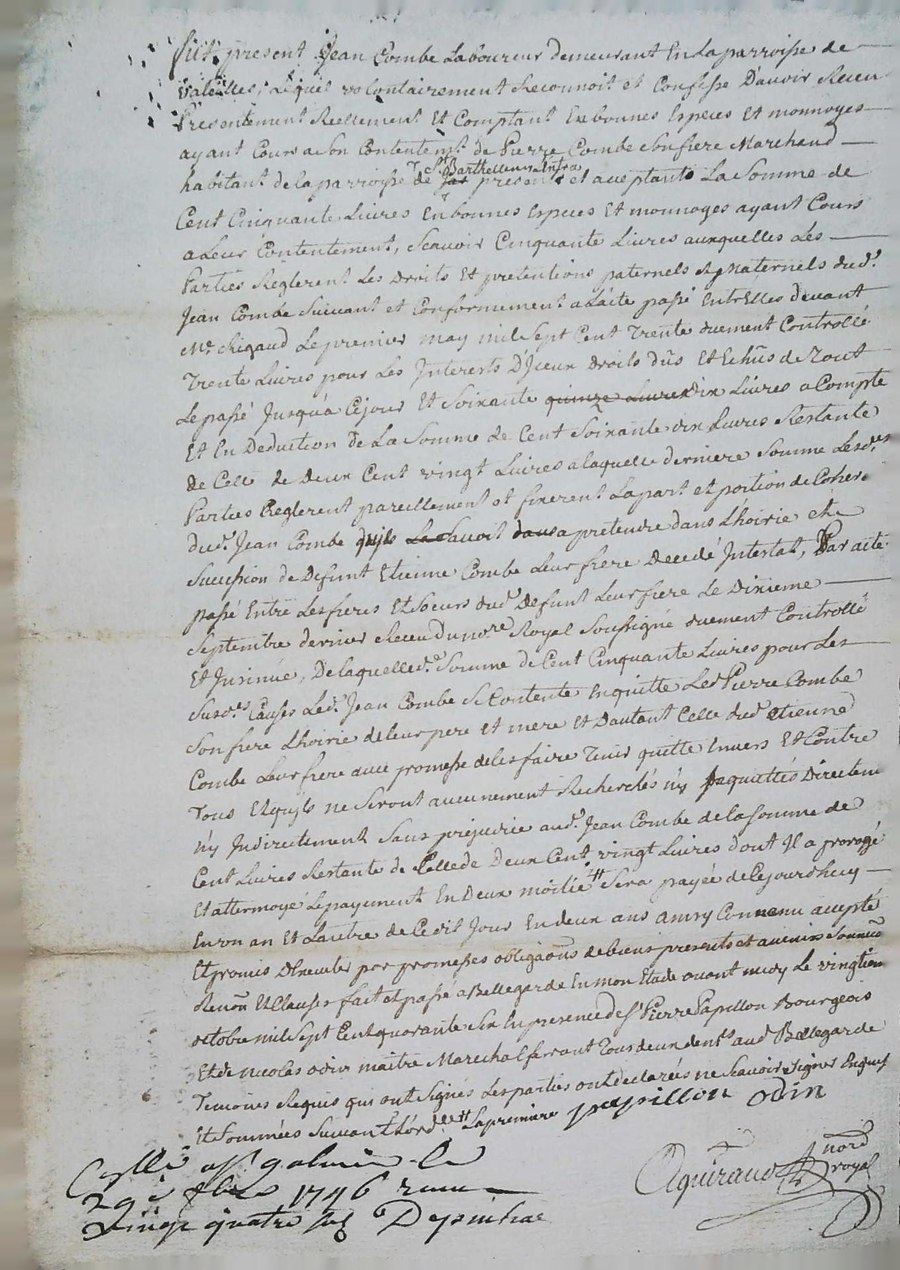 fut present Jean Combe Laboureur demeurant En La parroisse de
valeilles, Lequel volontairement Reconnoit et Confesse Davoir Receu
Presentement Reellement Et Comptant En bonnes Especes Et monnoyes
ayant Cours a Son Contentemt. de Pierre Combe Son frere Marchand
habitant de la parroisse de St Barthellemy Lestra present et acceptant La Somme de
Cent Cinquante Livres En bonnes Especes Et monnoyes ayant Cours
a Leur Contentement, Scavoir Cinquante Livres auxquelles Les
Parties Reglerent Les Droits Et pretentions paternels & Maternels dud.
Jean Combe Suivant et Conformement a Lacte passé Entr'Elles devant
Me. Rigaud Le premier may mil Sept Cent Trente duement Controllé
Trente Livres pour Les Interests D'Iceux Droits dûs Et Echûs de Tout
Le passé Jusqu'a Cejour Et Soixante quinze Livres dix Livres a Compte
Et En Deduction de La Somme de Cent Soixante dix Livres Restante
de Celle de Deux Cent vingt Livres a laquelle derniere Somme Lesd.es
Parties Reglerent pareillement et fixerent La part et portion de Coherie
dud. Jean Combe quil avoit a pretendre dans L'hoirie et
Succession de Defunt Etienne Combe Leur frere Decedé Intestat, Par acte
passé Entre Les freres Et Soeurs dud. Defunt Leur frere Le Dixieme
Septembre dernier Receu du nore. Royal Soussigne duement Controllé
Et Insinué, De laquelle d.e Somme de Cent Cinquante Livres pour Les
Susd.es Causes Led. Jean Combe Se Contente En quitte Led. Pierre Combe
Son frere L'hoirie de Leur pere et mere Et Dautant Celle dud. Etienne
Combe Leur frere avec promesse de les faire Tenir quitte Envers Et Contre
Tous Et quils ne Seront aucunement Recherchés ny Inquiettés Directem
ny Indirectement Sans prejudice aud. Jean Combe de la Somme de
Cent Livres Restante de Celle de Deux Cent vingt Livres dont Il a prorogé
Et attermoyé Le payement En Deux moitié Sera payée de Cejourdhuy
En un an Et L'autre de Cedit Jour En deux ans ainsy Convenu accepté
Et promis Observer par promesses obligaôns de biens presents et avenir Soumiôn
Renôn Et Clauses fait et passé a Bellegarde En mon Etude avant midy Le vingtieme
octobre mil Sept Cent quarante Six En presence de Sr. Pierre Papillon Bourgeois
Et de Nicolas odin maître Marechal ferrant Tous deux dem.ts aud. Bellegarde
Temoins Requis qui ont Signés Les parties ont declarées ne Scavoir Signer Enquis
Et Sommées Suivant L'ord.ce La premiere papillon odin
Cllé a St galmier le
29e 8bre 1746 recu
vingt quatre sols
noré royal